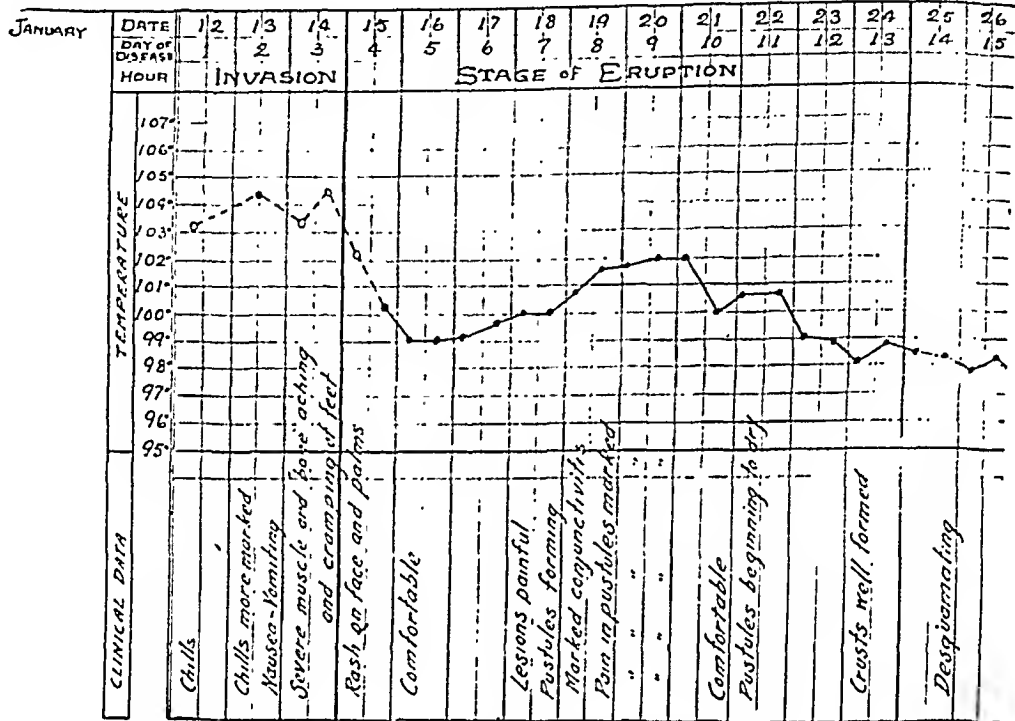 JANUARY
DATE 12 13 14 15 16 17 18 19 20 21 22 23 24 25 26
DAY OF DISEASE 1 2 3 4 5 6 7 8 9 10 11 12 13 14 15
HOUR INVASION STAGE OF ERUPTION
TEMPERATURE
107°
106°
105°
104°
103°
102°
101°
100°
99°
98°
97°
96°
95°
CLINICAL DATA
Chills
Chills more marked
Nausea-Vomiting
Severe muscle and "bone" aching
and cramping of feet
Rash on face and palms
Comfortable
Lesions painful
Pustules forming
Marked conjunctivitis
Pain in pustules marked
" " " "
" " " "
Comfortable
Pustules beginning to dry
Crusts well formed
Desquamating